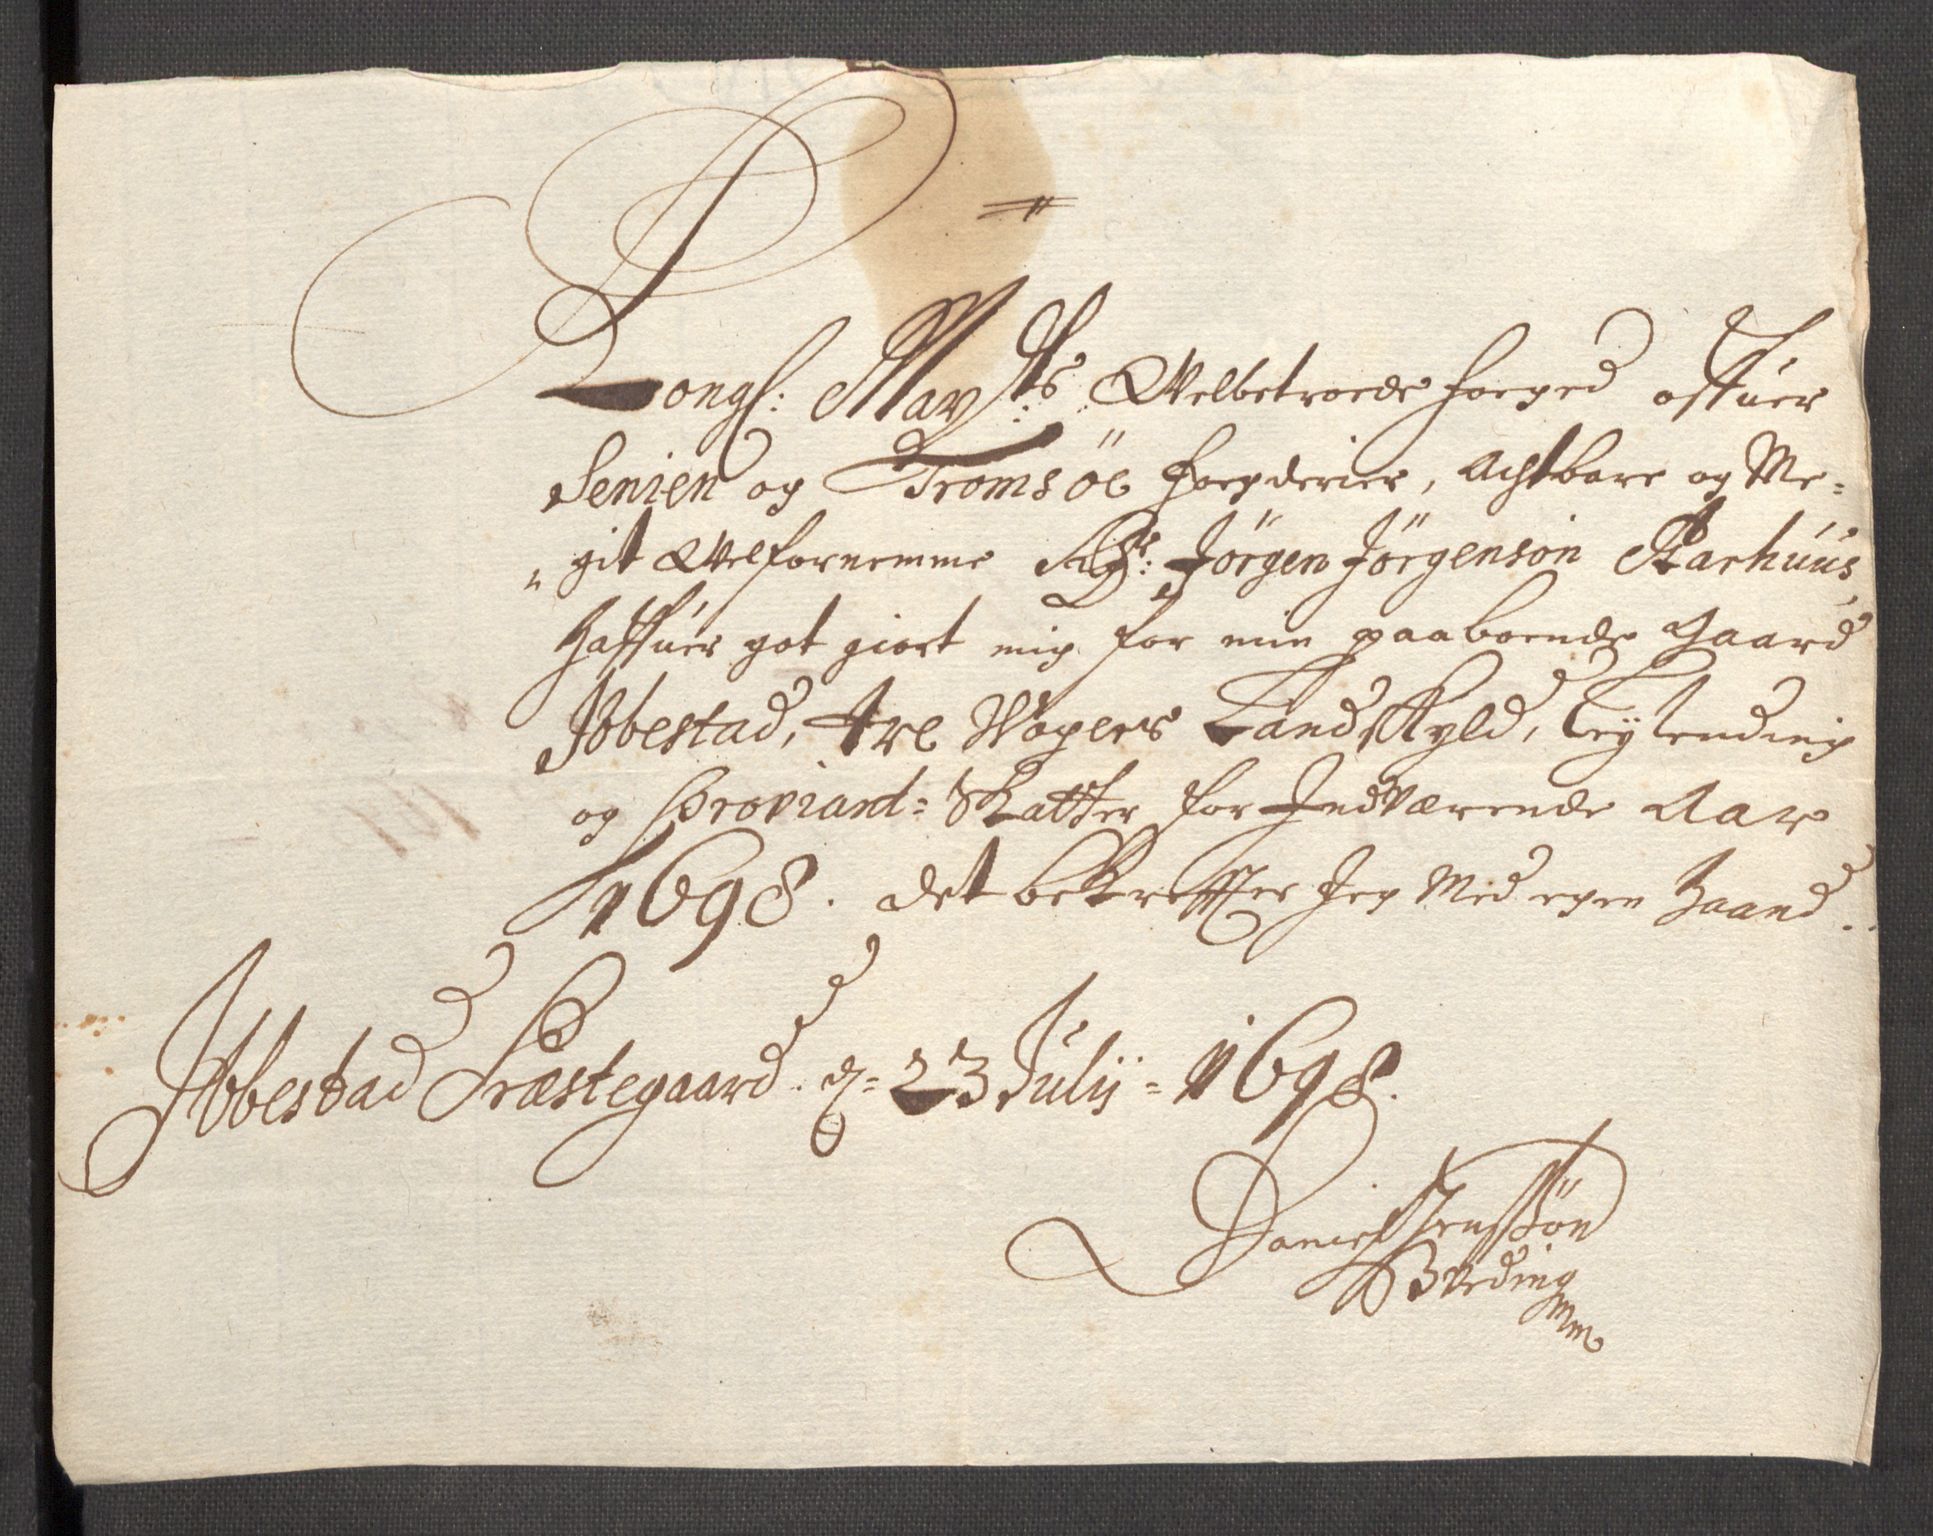 Kongl: Mayts: Welbetroede foeged offuer
Senien og Tromsöe fogderier, Achtbare og Me=
"git Welfornemme Sgr: Jörgen Jörgensön Aarhuus,
Haffuer got giort mig for min paaboende Gaard
Ibbestad, tre Wogers Landskyld, Leylending
og Proviant= Skatter for Indværende Aar
1698. det bekreffter Jeg Med egen Haand.
Ibbestad Præstegaard. d= 23 Julij = 1698.
Daniel Jenssön
Burding
Mm